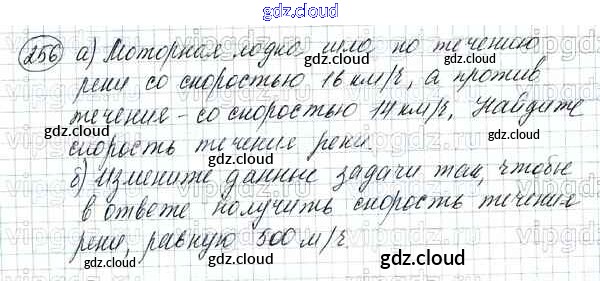 gdz.cloud
256 а) Моторная лодка шла по течению
gdz.cloud
реки со скоростью 16 км/ч, а против
gdz.cloud gdz.cloud
течения - со скоростью 14 км/ч. Найдите
gdz.cloud gdz.cloud
скорость течения реки.
gdz.cloud
б) Измените данные задачи так, чтобы
gdz.cloud gdz.cloud
в ответе получить скорость течения
gdz.cloud
реки, равную 500 м/ч.
gdz.cloud
gdz.cloud